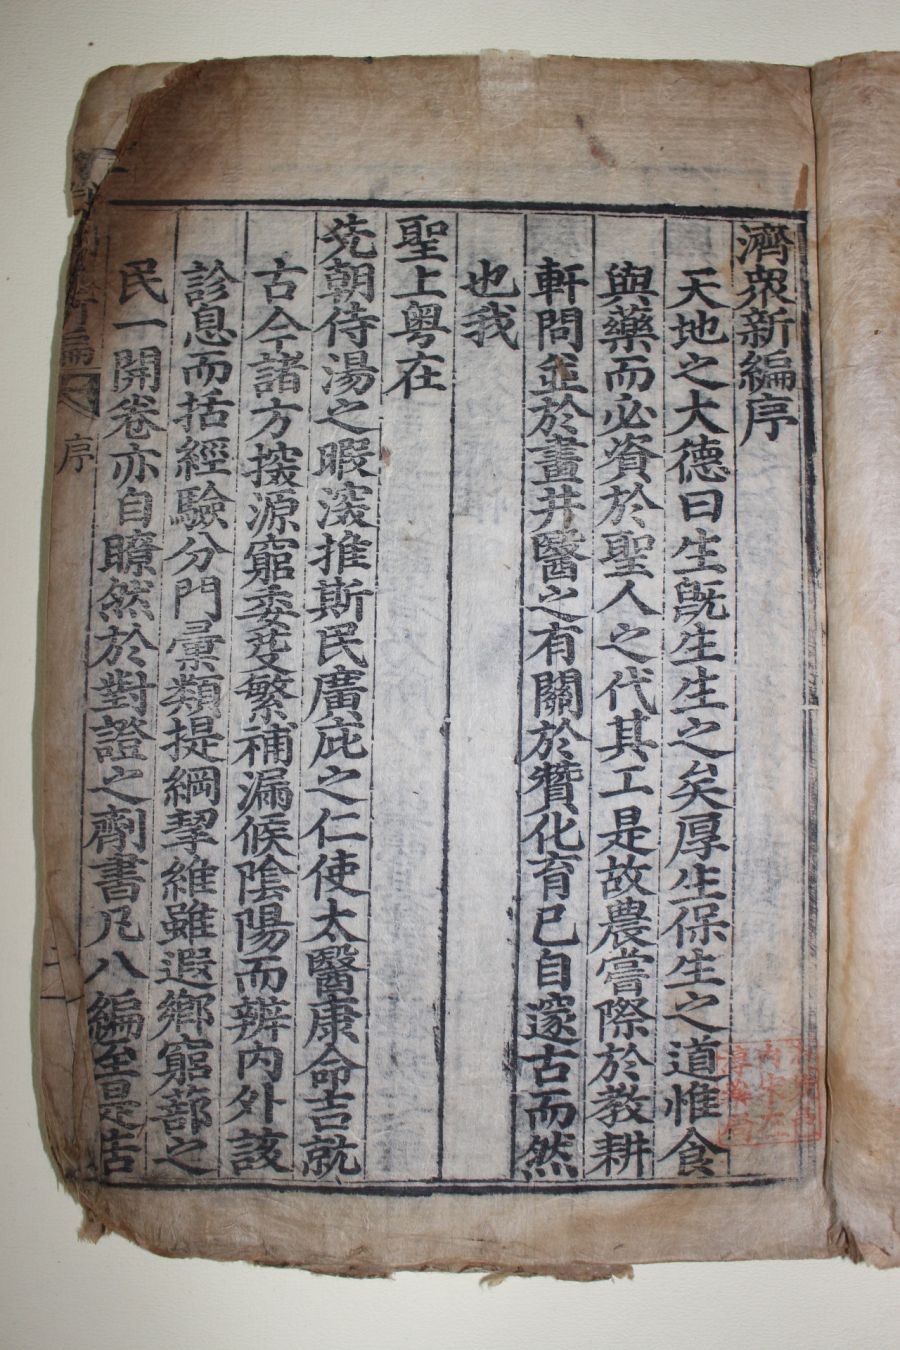 濟衆新編序
天地之大德曰生旣生生之矣厚生保生之道惟食
與藥而必資於聖人之代其工是故農嘗際於敎耕
軒問並於畫井醫之有關於贊化育已自邃古而然
也我
聖上粤在
先朝侍湯之暇深推斯民廣庇之仁使太醫康命吉就
古今諸方探源窮委芟繁補漏候陰陽而辨內外該
診息而括經驗分門彙類提綱挈維雖遐鄕窮蔀之
民一開卷亦自瞭然於對證之劑書凡八編至是告
編
序